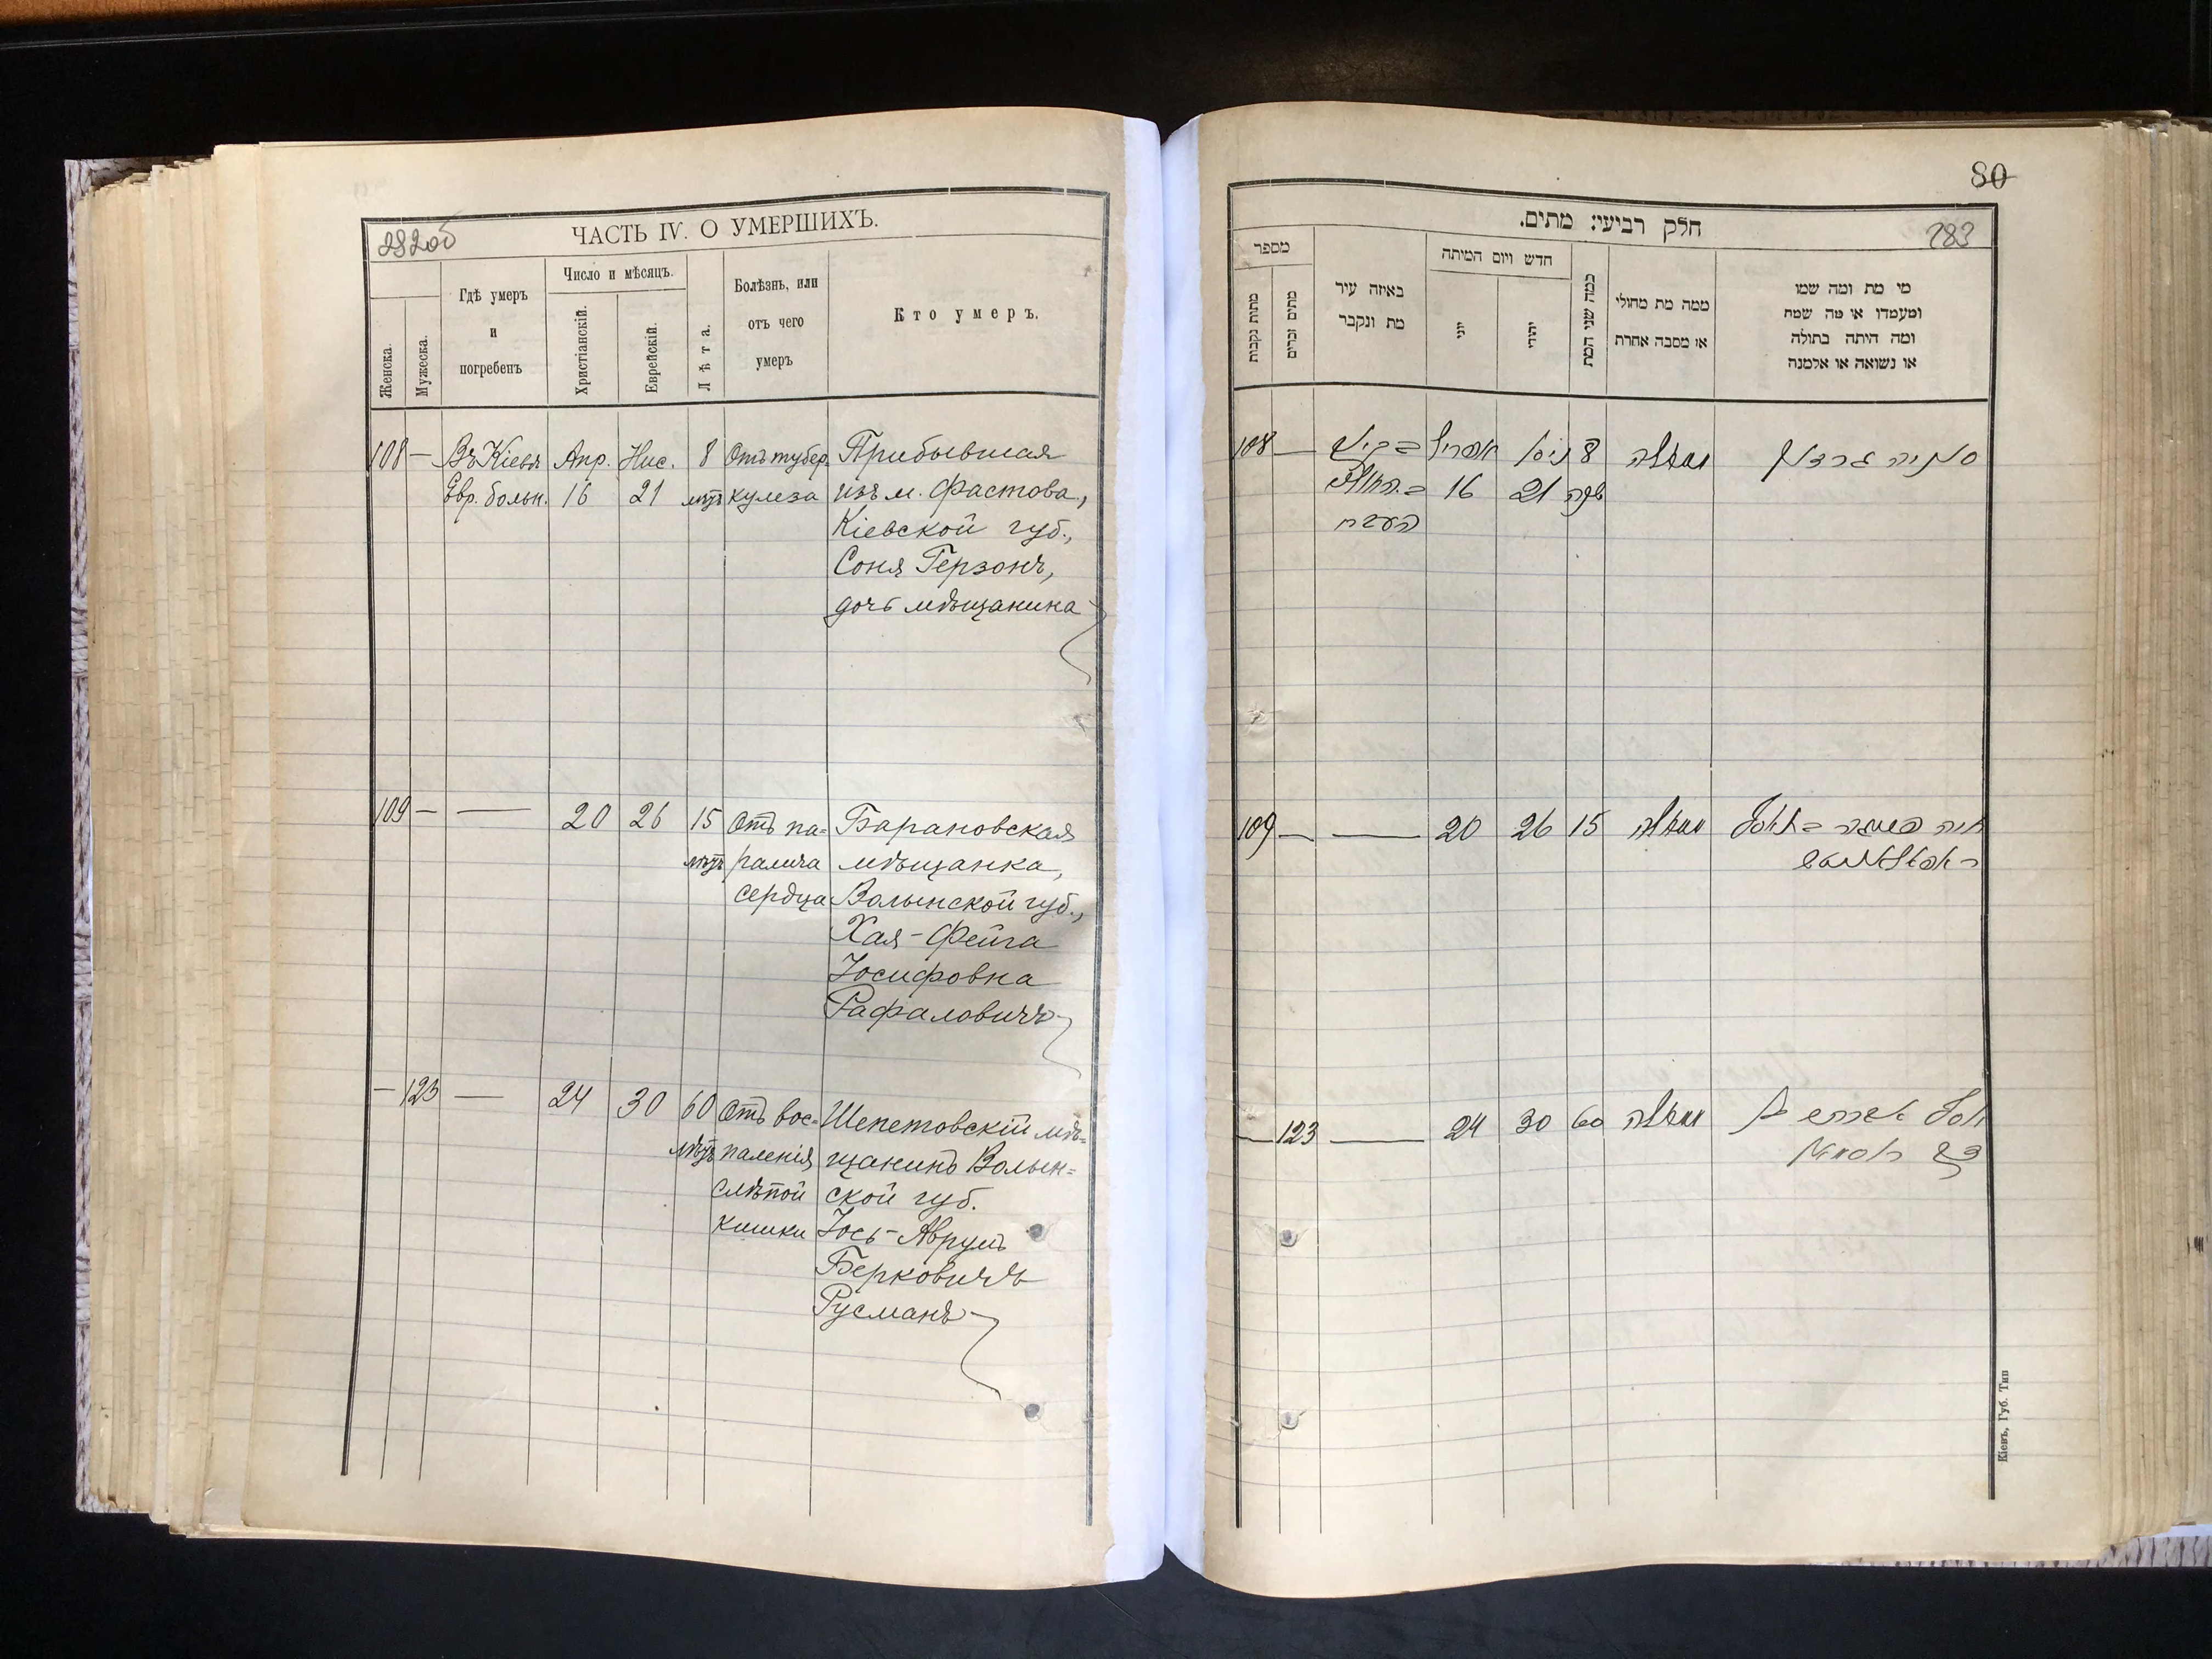 282об
ЧАСТЬ IV. О УМЕРШИХЪ.
Женска.
Мужеска.
Гдѣ умеръ
и
погребенъ
Число и мѣсяцъ.
Христіанскій.
Еврейскій.
Лѣта.
Болѣзнь, или
отъ чего
умеръ
Кто умеръ.
108 — Въ Кіевѣ Апр. Нис. 8 Отъ тубер- Прибывшая
Евр. больн. 16 21 лѣтъ кулеза изъ м. Фастова,
Кіевской губ.,
Соня Герзонъ,
дочь мѣщанина
109 — — 20 26 15 Отъ па= Барановская
лѣтъ ралича мѣщанка,
сердца Волынской губ.,
Хая-Фейга
Іосифовна
Рафаловичъ
— 123 — 24 30 60 Отъ вос= Шепетовскій мѣ=
лѣтъ паленія щанинъ Волын=
слѣпой ской губ.
кишки Іось-Аврумъ
Берковичъ
Русманъ
80
283
חלק רביעי: מתים.
מספר
מתות נקבות
מתים זכרים
באיזה עיר
מת ונקבר
חדש ויום המיתה
יוני
יהודי
כמה שני המת
ממה מת מחולי
או מסבה אחרת
מי מת ומה שמו
ומעמדו או מה שמה
ומה היתה בתולה
או נשואה או אלמנה
108 — אפריל ניסן 8
16 21 שנה
109 — — 20 26 15
— 123 — 24 30 60
Кіевъ, Губ. Тип